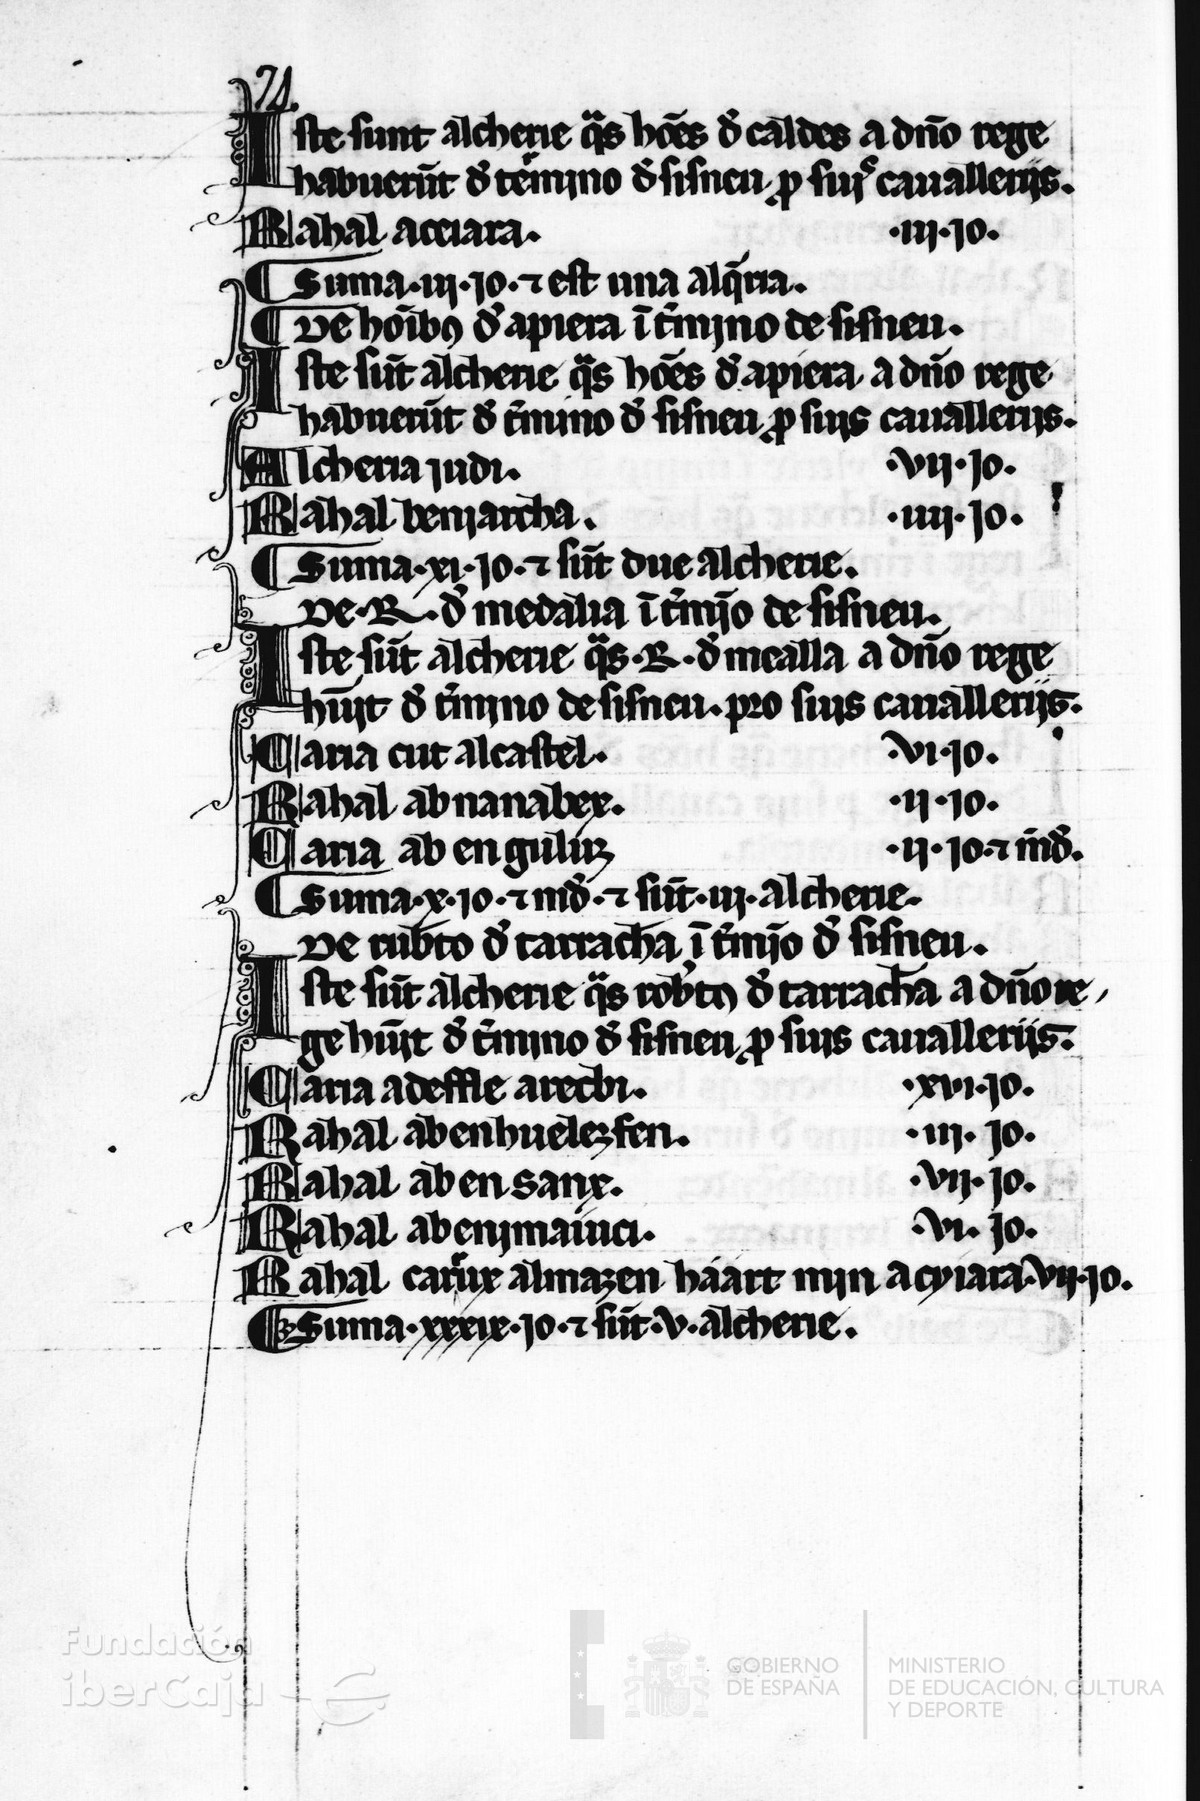 71.
Iste sunt alcherie q̄s hoēs đ caldes a dn̄o rege
habuerūt đ tēmino đ sisneu ꝑ suis cauallerijs.
Rahal acciara. ·iij·jo·
Suma·iij·jo·⁊ est una alq̄ria.
De hoībꝯ đ apiera ī t̄mino de sisneu.
Iste sūt alcherie q̄s hoēs đ apiera a dn̄o rege
habuerūt đ t̄mino đ sisneu ꝑ suis cauallerijs.
Alcheria judi. ·vij·jo·
Rahal beniarcha. ·iiij·jo·
Suma·xi·jo·⁊ sūt due alcherie.
De·R·đ medalia ī t̄mīo de sisneu.
Iste sūt alcherie q̄s·R·đ mealla a dn̄o rege
hūit đ t̄mino de sisneu·pro suis cauallerijs.
Caria cut alcastel. ·vi·jo·
Rahal abnanabex. ·ij·jo·
Caria aben guluz ·ij·jo·⁊ mđ.
Suma·x·jo·⁊ mđ·⁊ sūt·iij·alcherie.
De rubto đ tarracha ī t̄mīo đ sisneu.
Iste sūt alcherie q̄s robtꝯ đ tarracha a dn̄o re
ge hūit đ t̄mino đ sisneu ꝑ suis cauallerijs.
Caria adeffle arecbi. ·xvi·jo·
Rahal abenhuelezfen. ·iij·jo·
Rahal aben sanx. ·vij·jo·
Rahal abenjmaiuci. ·vi·jo·
Rahal almazen háart min acyiara·vij·jo.
Suma·xxxix·jo·⁊ sūt·v·alcherie.
Fundación
iberCaja
GOBIERNO
DE ESPAÑA
MINISTERIO
DE EDUCACIÓN, CULTURA
Y DEPORTE